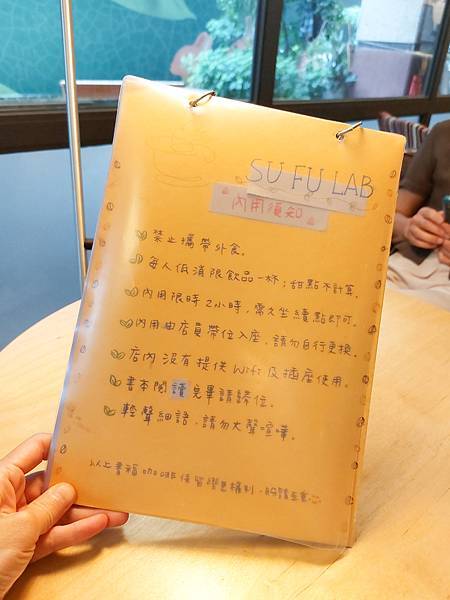 SU FU LAB
內用須知
禁止攜帶外食。
每人低消限飲品一杯;甜點不計算。
內用限時2小時,需久坐續點即可。
內用由店員帶位入座,請勿自行更換。
店內沒有提供Wifi及插座使用。
書本閱讀完畢請歸位。
輕聲細語,請勿大聲喧嘩。
以上書福 保留變更權利,